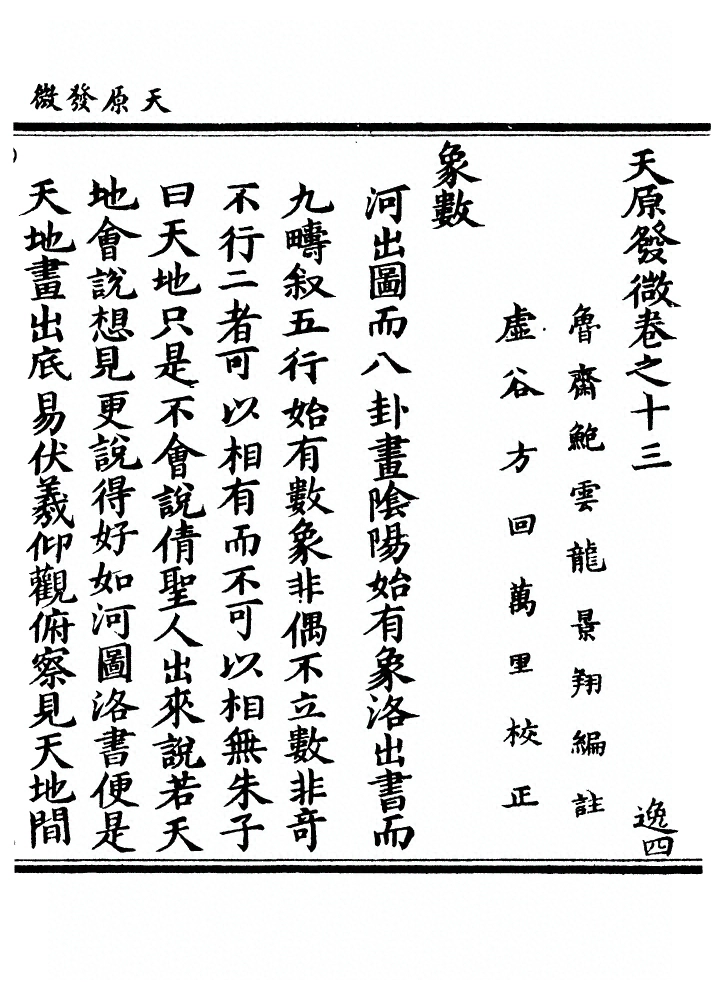 天原發微
天原發微卷之十三 逸四
魯齋鮑雲龍景翔編註
虛谷方回萬里校正
象數
河出圖而八卦畫陰陽始有象洛出書而
九疇叙五行始有數象非偶不立數非奇
不行二者可以相有而不可以相無朱子
曰天地只是不會說倩聖人出來說若天
地會說想見更說得好如河圖洛書便是
天地畫出底易伏羲仰觀俯察見天地間